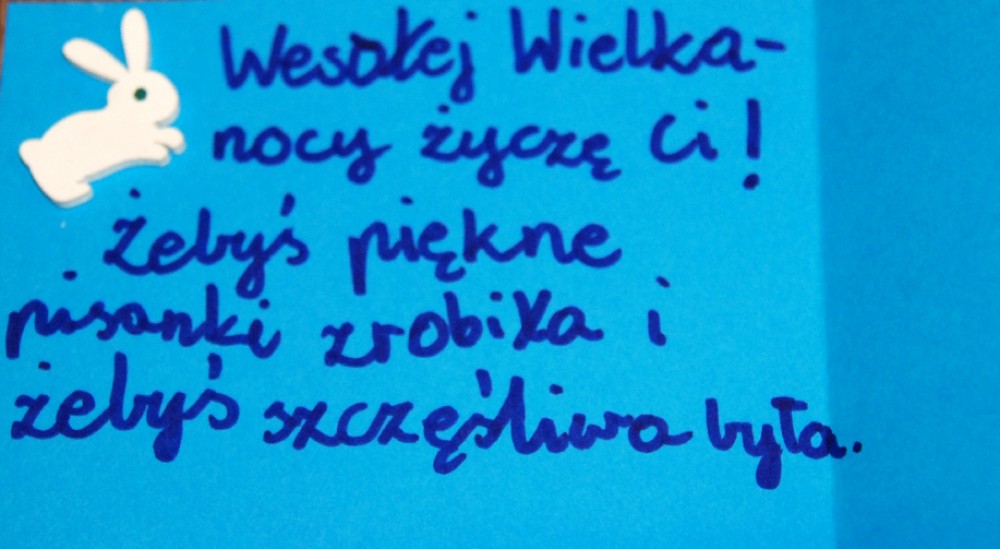 Wesołej Wielka-
nocy życzę Ci!
Żebyś piękne
pisanki zrobiła i
żebyś szczęśliwa była.